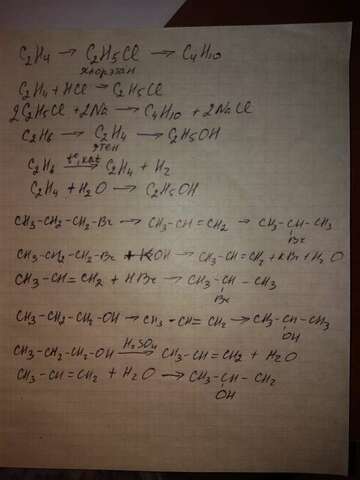 C₂H₄ → C₂H₅Cl → C₄H₁₀
хлорэтан
C₂H₄ + HCl → C₂H₅Cl
2C₂H₅Cl + 2Na → C₄H₁₀ + 2NaCl
C₂H₆ → C₂H₄ → C₂H₅OH
этен
C₂H₆ t°, kat → C₂H₄ + H₂
C₂H₄ + H₂O → C₂H₅OH
CH₃-CH₂-CH₂-Br → CH₃-CH=CH₂ → CH₃-CH-CH₃
Br
CH₃-CH₂-CH₂-Br + KOH → CH₃-CH=CH₂ + KBr + H₂O
CH₃-CH=CH₂ + HBr → CH₃-CH-CH₃
Br
CH₃-CH₂-CH₂-OH → CH₃-CH=CH₂ → CH₃-CH-CH₃
OH
CH₃-CH₂-CH₂-OH H₂SO₄ → CH₃-CH=CH₂ + H₂O
CH₃-CH=CH₂ + H₂O → CH₃-CH-CH₂
OH